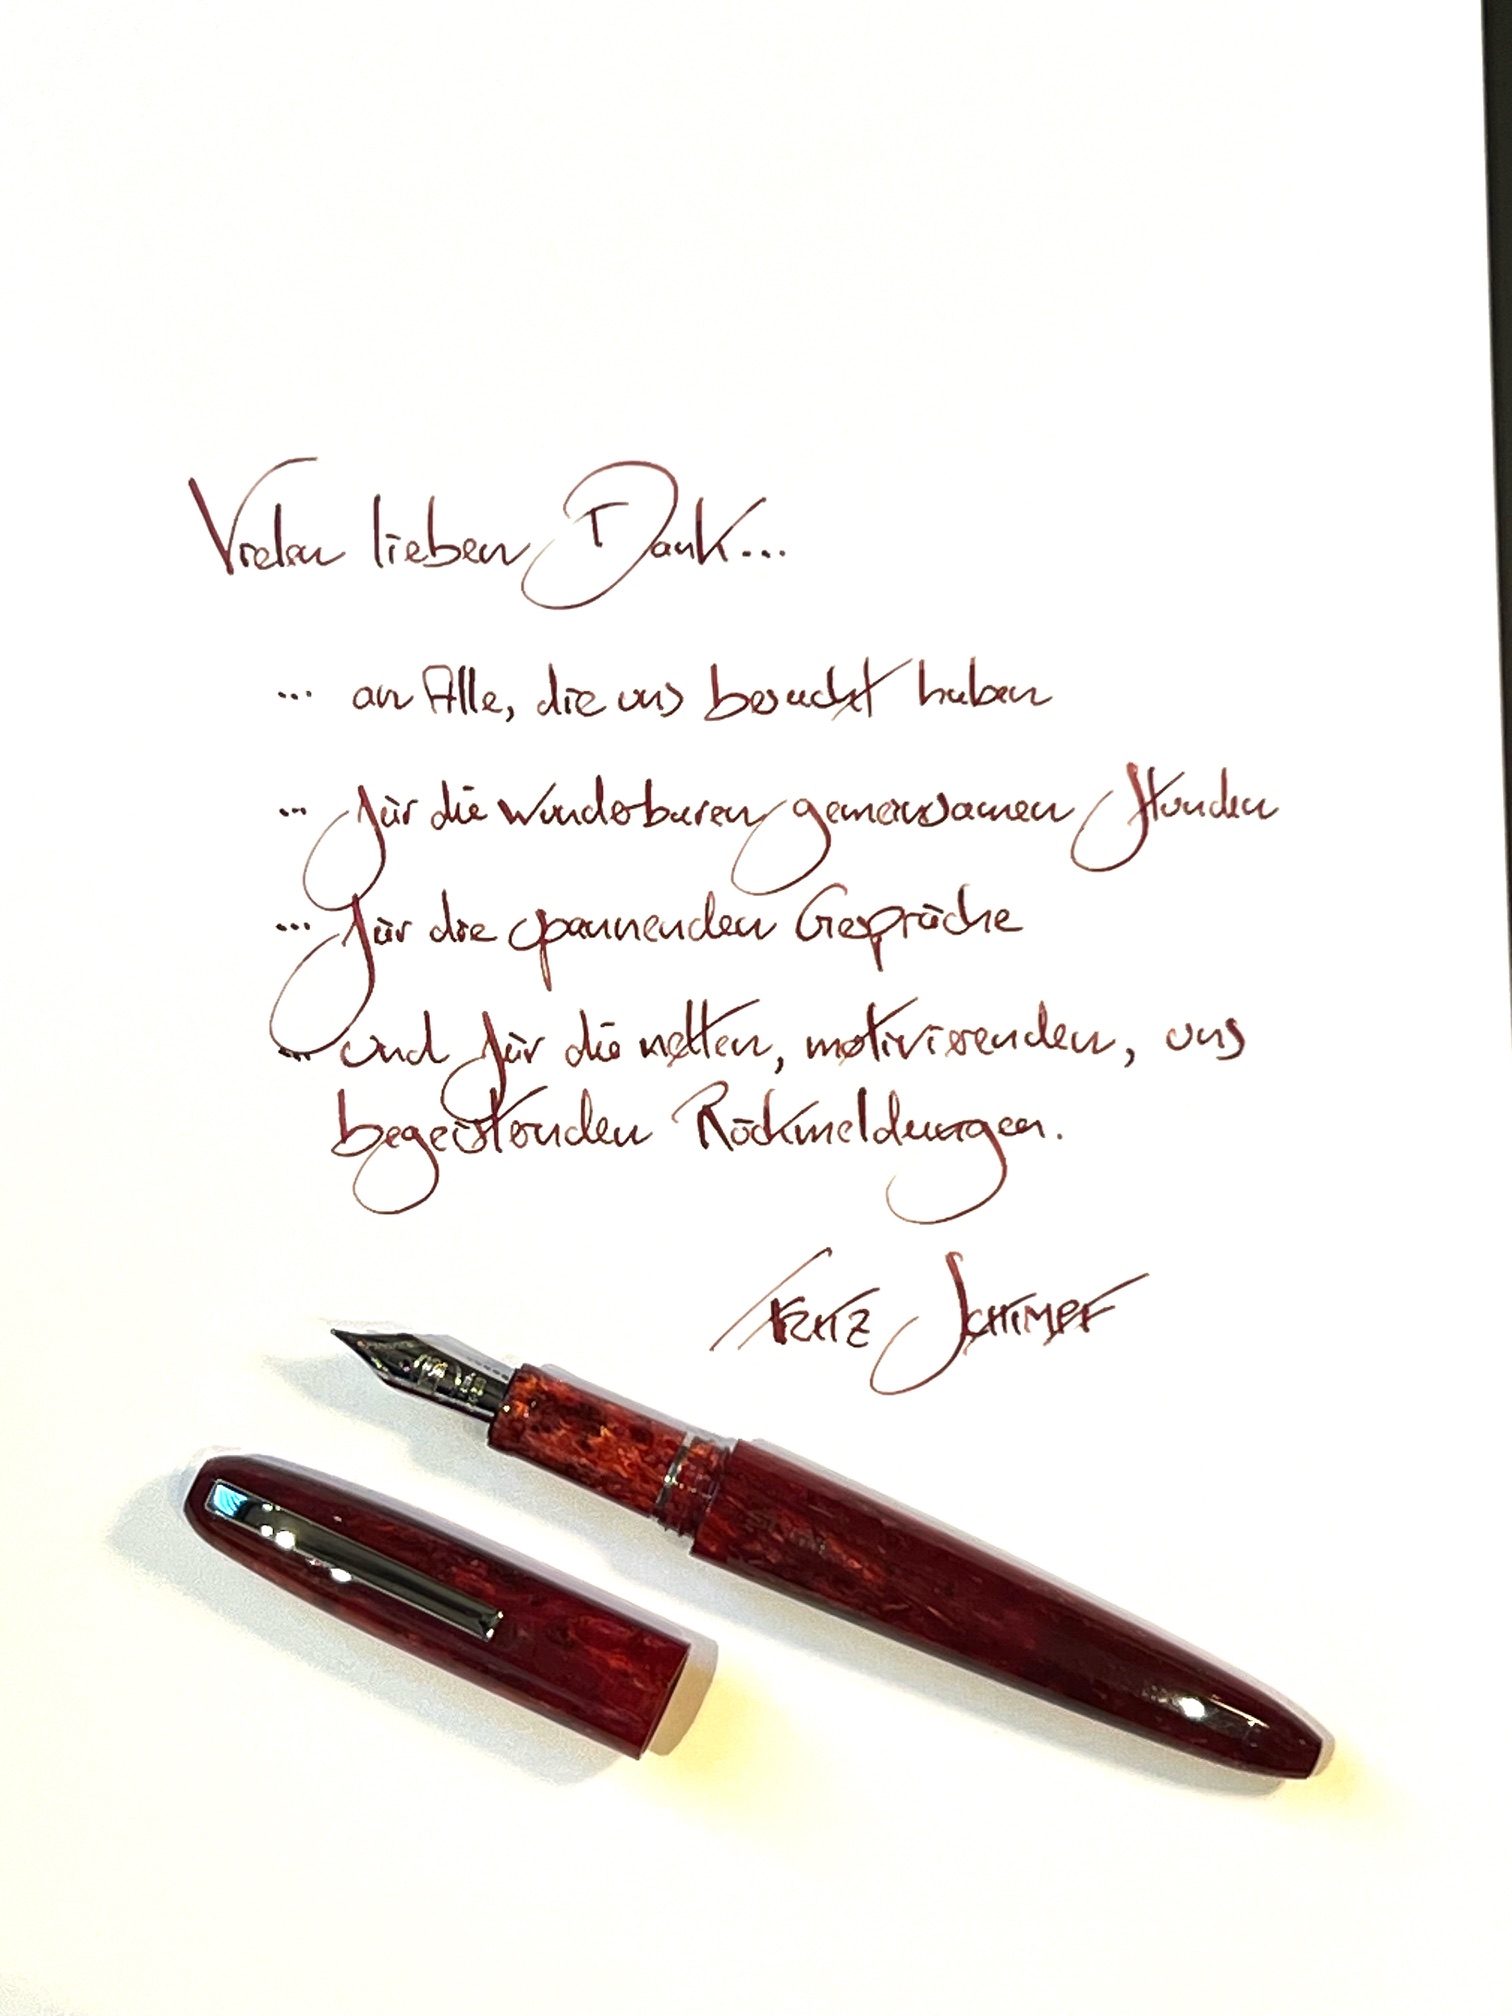 Vielen lieben Dank...
... an Alle, die uns besucht haben
... für die wunderbaren gemeinsamen Stunden
... für die spannenden Gespräche
... und für die netten, motivierenden, uns
begeisternden Rückmeldungen.
FRITZ SCHIMPF